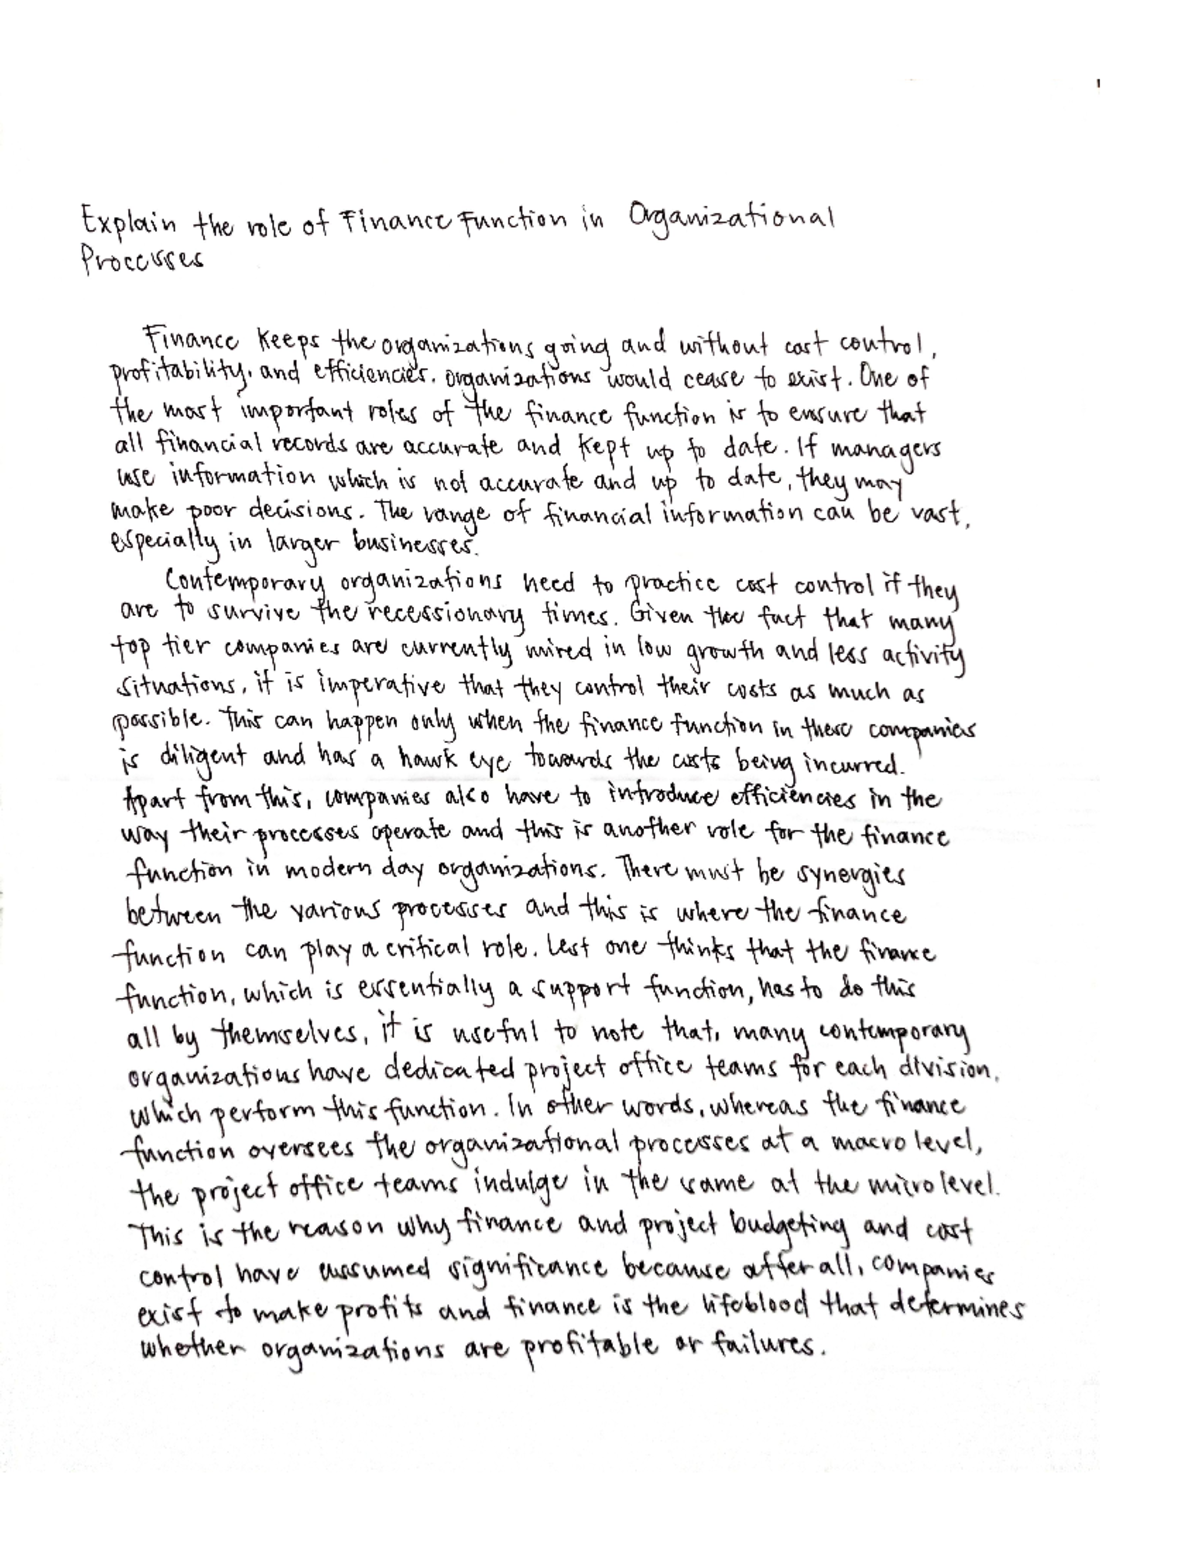 Explain the role of Finance Function in Organizational
Processes
Finance keeps the organizations going and without cost control,
profitability, and efficiencies, organizations would cease to exist. One of
the most important roles of the finance function is to ensure that
all financial records are accurate and kept up to date. If managers
use information which is not accurate and up to date, they may
make poor decisions. The range of financial information can be vast,
especially in larger businesses.
Contemporary organizations need to practice cost control if they
are to survive the recessionary times. Given the fact that many
top tier companies are currently mired in low growth and less activity
situations, it is imperative that they control their costs as much as
possible. This can happen only when the finance function in these companies
is diligent and has a hawk eye towards the costs being incurred.
Apart from this, companies also have to introduce efficiencies in the
way their processes operate and this is another role for the finance
function in modern day organizations. There must be synergies
between the various processes and this is where the finance
function can play a critical role. Lest one thinks that the finance
function, which is essentially a support function, has to do this
all by themselves, it is useful to note that, many contemporary
organizations have dedicated project office teams for each division,
which perform this function. In other words, whereas the finance
function oversees the organizational processes at a macro level,
the project office teams indulge in the same at the micro level.
This is the reason why finance and project budgeting and cost
control have assumed significance because after all, companies
exist to make profits and finance is the lifeblood that determines
whether organizations are profitable or failures.